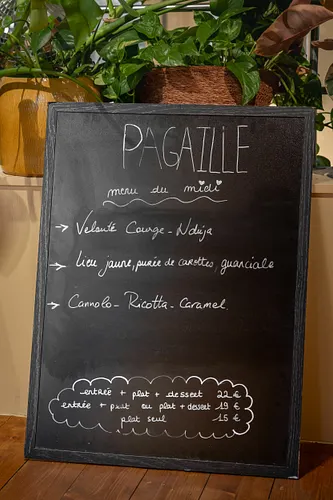 PAGAILLE
menu du midi
→ Velouté Courge - Nduja
→ Lieu jaune, purée de carottes, guanciale
→ Cannolo - Ricotta - Caramel.
entrée + plat + dessert 22 €
entrée + plat ou plat + dessert 19 €
plat seul 15 €